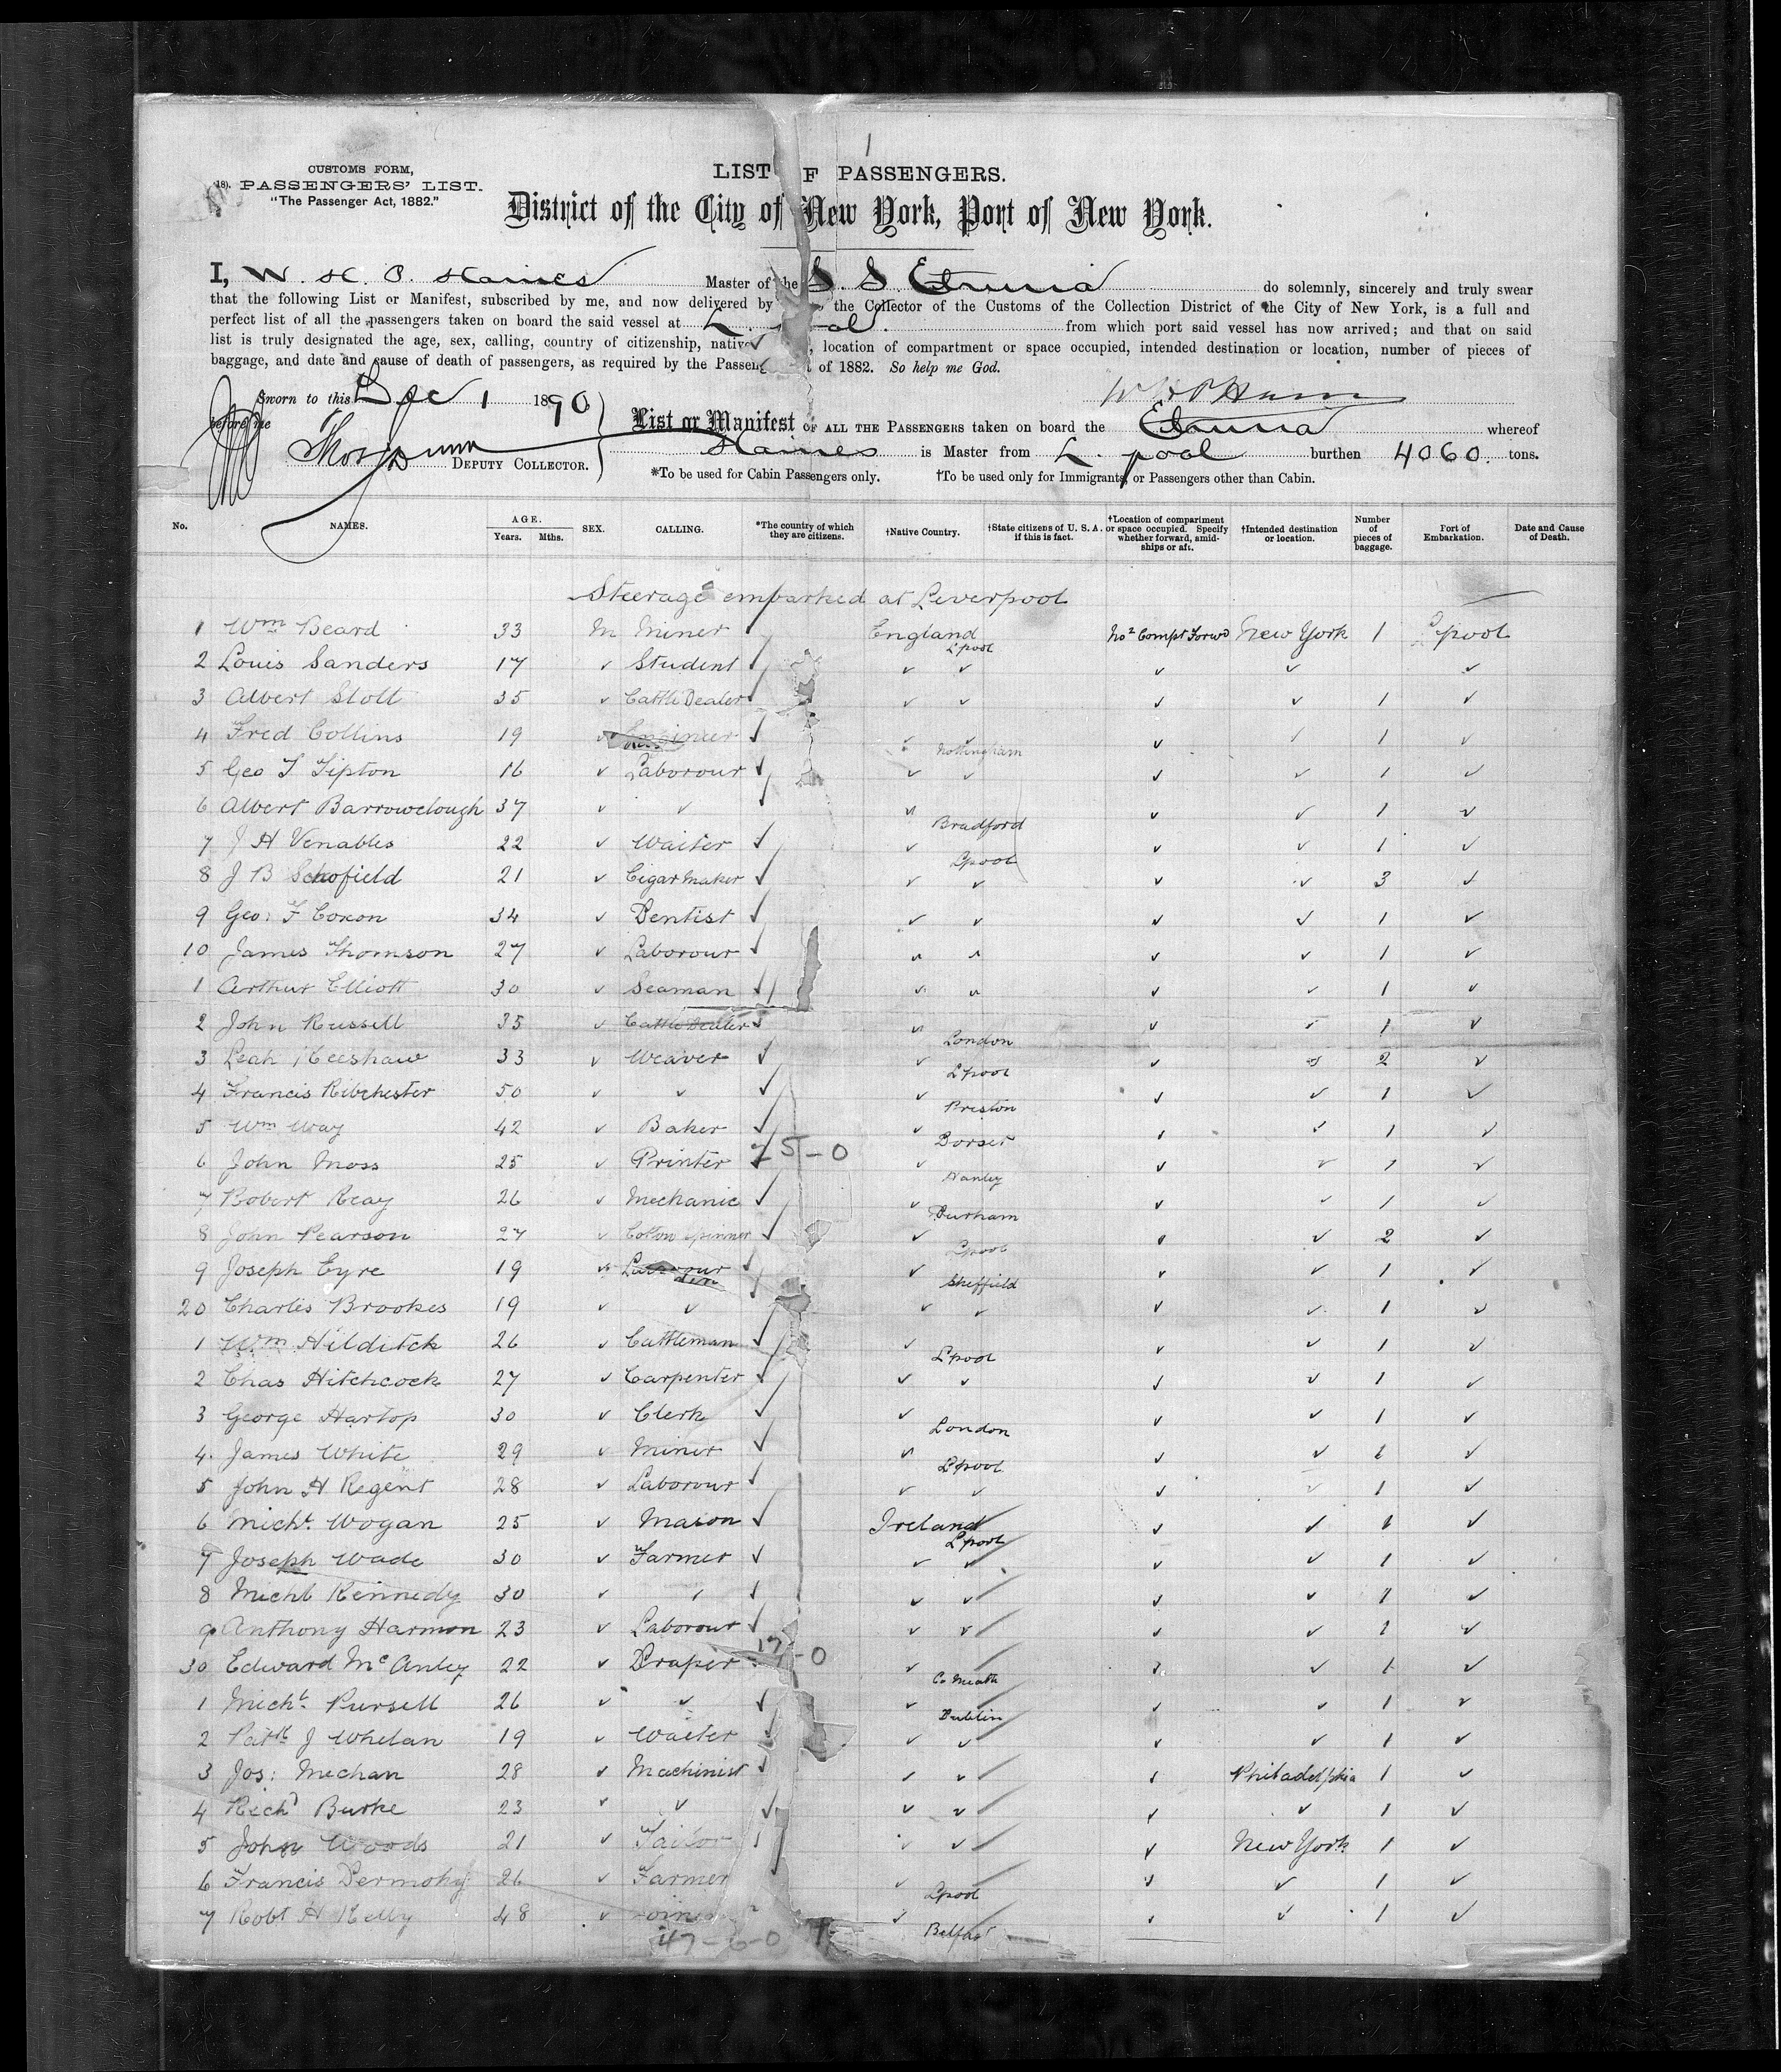 1
CUSTOMS FORM,
PASSENGERS' LIST.
"The Passenger Act, 1882."
LIST OF PASSENGERS.
District of the City of New York, Port of New York.
I, W. H. P. Haines Master of the S. S. Etruria do solemnly, sincerely and truly swear
that the following List or Manifest, subscribed by me, and now delivered by the Collector of the Customs of the Collection District of the City of New York, is a full and
perfect list of all the passengers taken on board the said vessel at L. pool from which port said vessel has now arrived; and that on said
list is truly designated the age, sex, calling, country of citizenship, native , location of compartment or space occupied, intended destination or location, number of pieces of
baggage, and date and cause of death of passengers, as required by the Passenger of 1882. So help me God.
Sworn to this Dec 1 1890
W H P Haines
before me
Thos Dunn DEPUTY COLLECTOR.
List or Manifest OF ALL THE PASSENGERS taken on board the Etruria whereof
Haines is Master from L. pool burthen 4060. tons.
*To be used for Cabin Passengers only. †To be used only for Immigrants, or Passengers other than Cabin.
No. NAMES. AGE. Years. Mths. SEX. CALLING. *The country of which they are citizens. †Native Country. †State citizens of U. S. A. if this is fact. †Location of compartment or space occupied. Specify whether forward, amidships or aft. †Intended destination or location. Number of pieces of baggage. Port of Embarkation. Date and Cause of Death.
Steerage embarked at Liverpool
1 Wm Beard 33 M Miner England Lpool No 2 Compt Forwd New York 1 Lpool
2 Louis Sanders 17 Student
3 Albert Stott 35 Cattle Dealer 1
4 Fred Collins 19 Engineer 1
5 Geo T Tipton 16 Labourour Nottingham 1
6 Albert Barrowclough 37 Bradford 1
7 J H Venables 22 Waiter Lpool 1
8 J B Schofield 21 Cigar Maker 3
9 Geo: F Coxon 34 Dentist 1
10 James Thomson 27 Laborour 1
1 Arthur Elliott 30 Seaman 1
2 John Russell 35 Cattle Dealer London 1
3 Leah Keeshaw 33 Weaver Lpool 2
4 Francis Ribchester 50 Preston 1
5 Wm Way 42 Baker Dorset 1
6 John Moss 25 Printer 75-0 Hanley 1
7 Robert Reay 26 Mechanic Durham 1
8 John Pearson 27 Cotton Spinner Lpool 2
9 Joseph Eyre 19 Laborour Sheffield 1
20 Charles Brookes 19 1
1 Wm Hilditch 26 Cattleman Lpool 1
2 Chas Hitchcock 27 Carpenter 1
3 George Hartop 30 Clerk London 1
4 James White 29 Miner Lpool 1
5 John H Regent 28 Laborour 1
6 Michl. Wogan 25 Mason Ireland Lpool 1
7 Joseph Wade 30 Farmer 1
8 Michl Kennedy 30 1
9 Anthony Harmon 23 Laborour 1
30 Edward McAnley 22 Draper Co Meath 1
1 Michl. Pursell 26 Dublin 1
2 Patk J Whelan 19 Waiter 1
3 Jos: Mechan 28 Machinist Philadelphia 1
4 Richd Burke 23 1
5 John Woods 21 Tailor New York 1
6 Francis Dermohy 26 Farmer Lpool 1
7 Robt H Kelly 48 Belfast 1
47-6-0